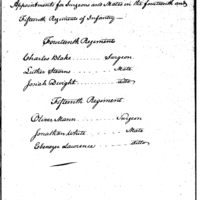 Appointments for Surgeons and Mates in the fourteenth and
Fifteenth Regiments of Infantry
Fourteenth Regiment
Charles Blake Surgeon
Luther Stearns Mate
Josiah Dwight ditto
Fifteenth Regiment
Oliver Mann Surgeon
Jonathan White Mate
Ebenezer Lawrence ditto